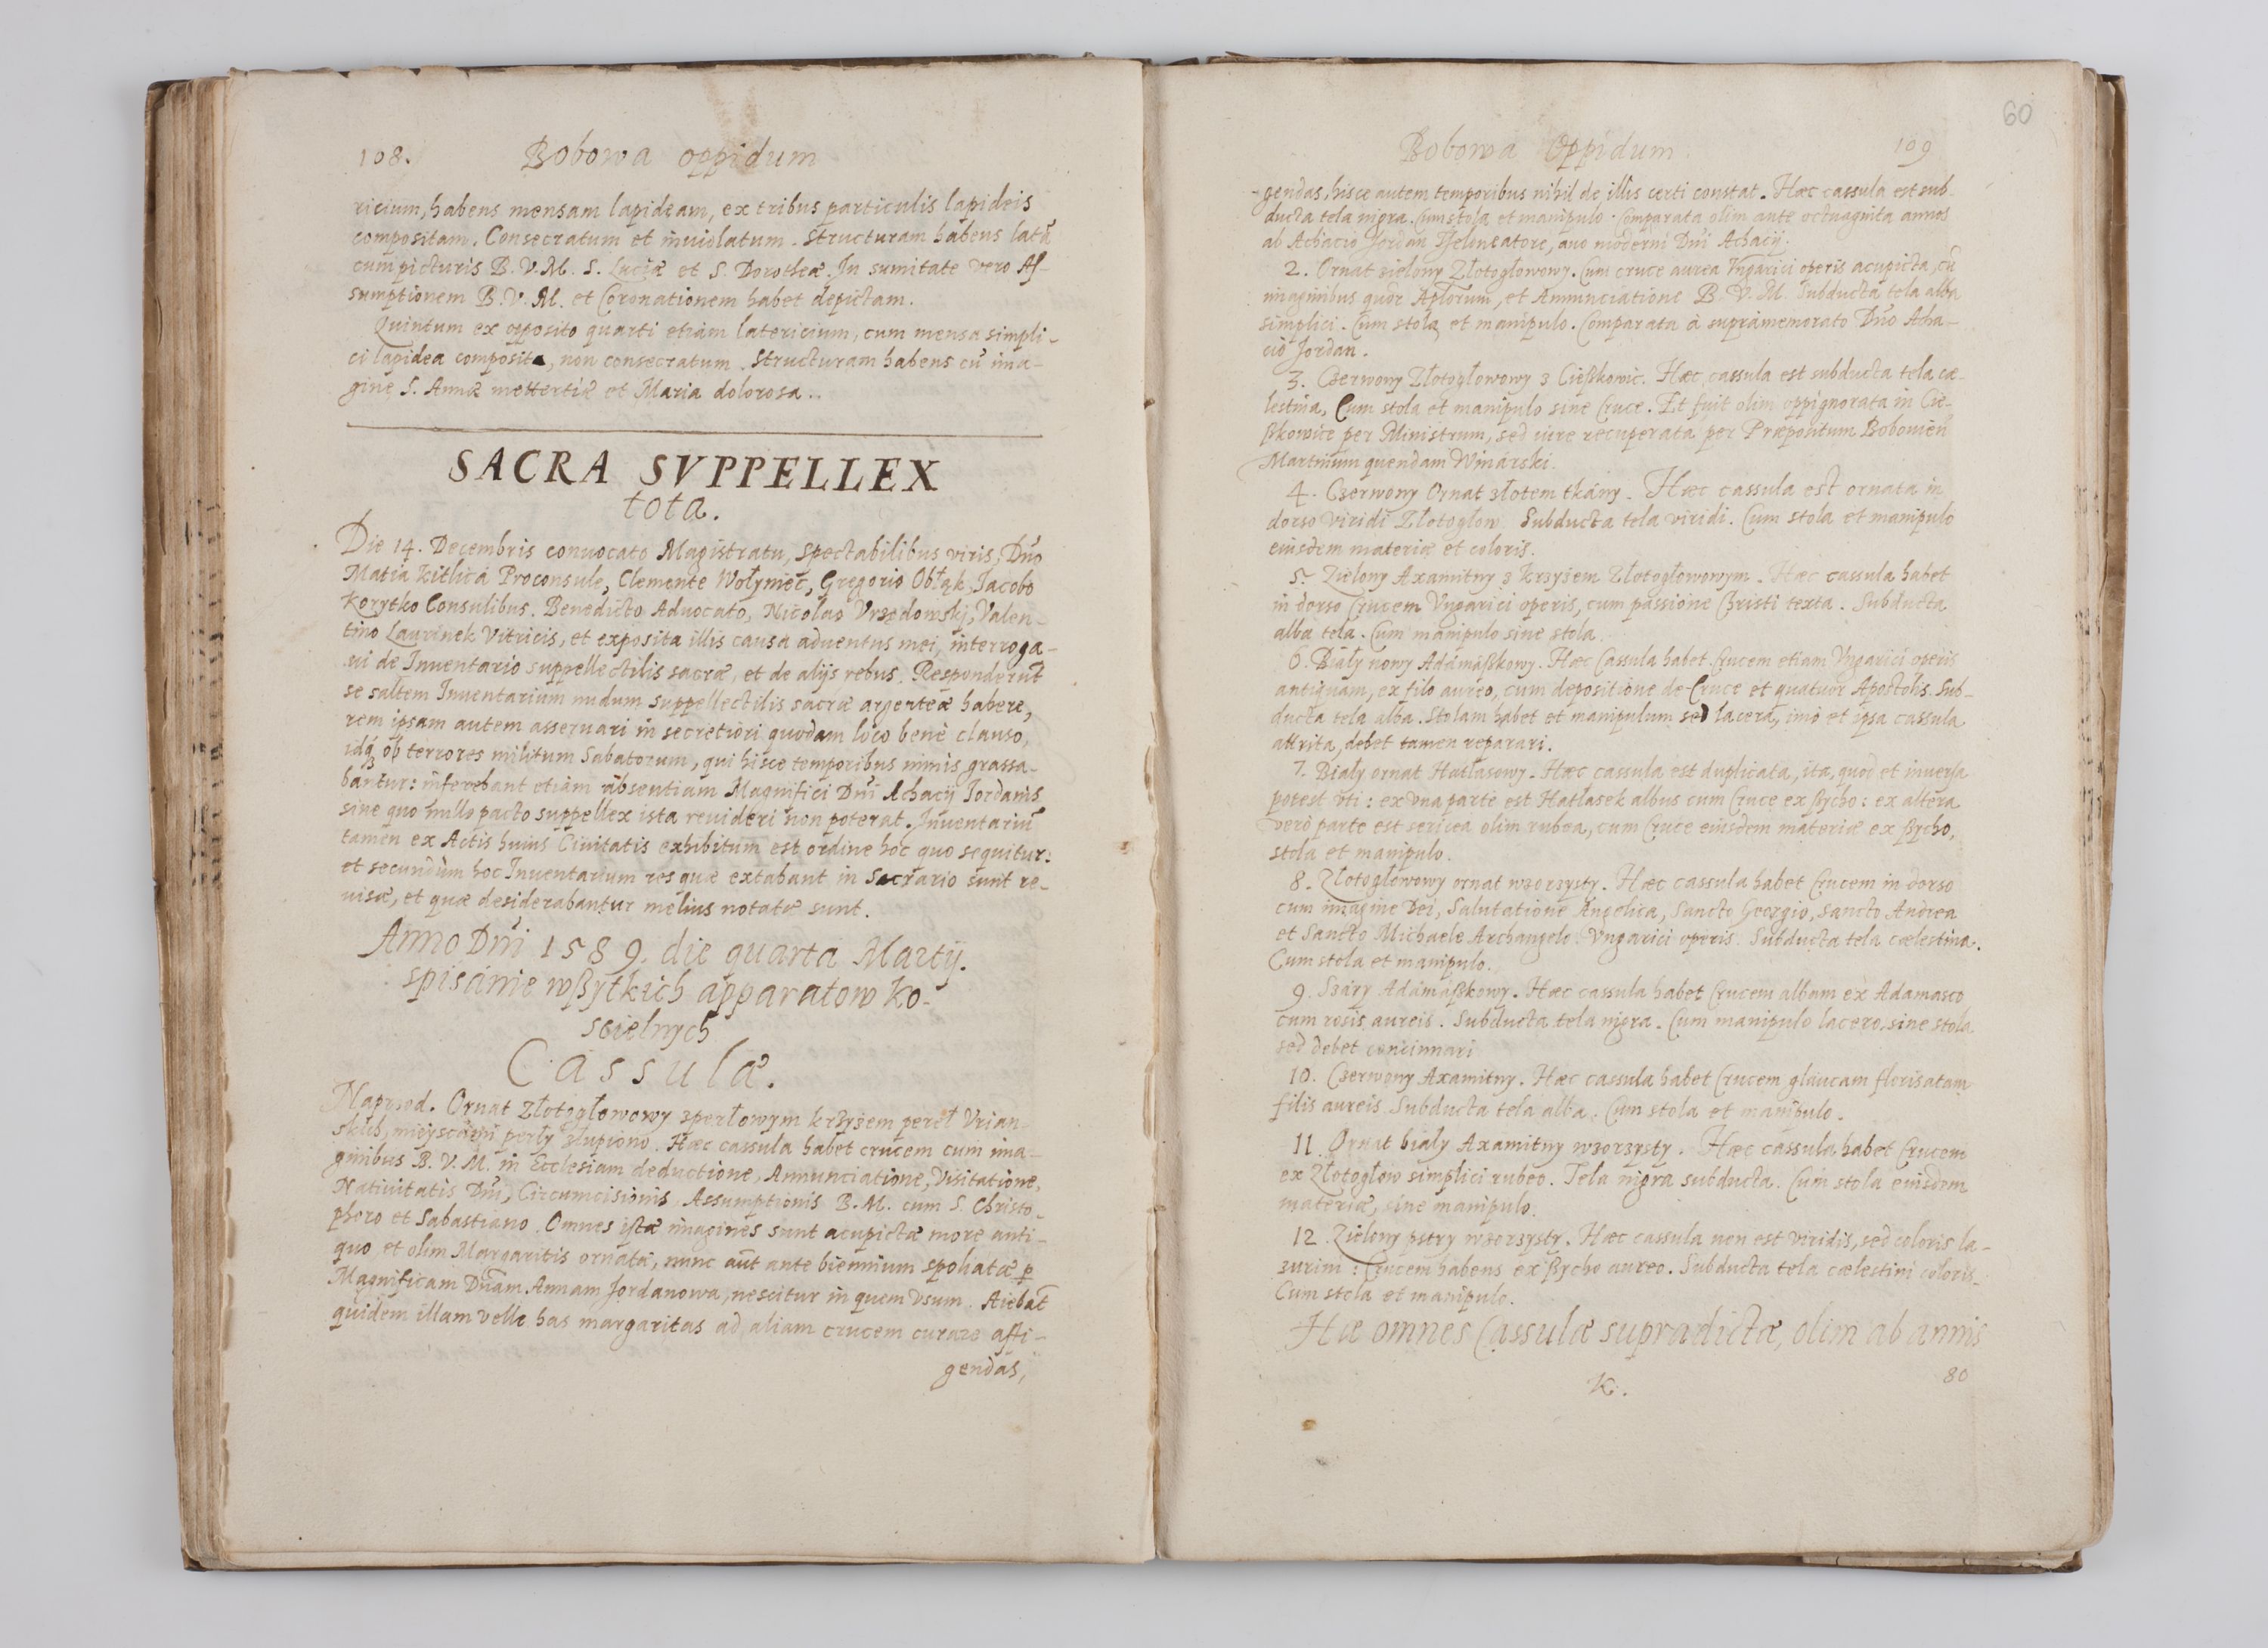 108. Bobowa oppidum
ricium, habens mensam lapideam, ex tribus particulis lapideis
compositam. Consecratum et inuiolatum. Structuram habens latā
cum picturis B. V. M. S. Luciæ et S. Dorotheæ. In sumitate vero As-
sumptionem B. V. M. et Coronationem habet depictam.
Quintum ex opposito quarti etiam latericium, cum mensa simpli-
ci lapidea composita, non consecratum. Structuram habens cū ima-
gine S. Annæ mettertiæ et Maria dolorosa.
SACRA SVPPELLEX
tota.
Die 14. Decembris conuocato Magistratu, spectabilibus viris, Dño
Matia Kitlica Proconsule, Clemente Wołyniec, Gregorio Obłąk, Jacobo
Korytko Consulibus. Benedicto Aduocato, Nicolao Vrzędowskj, Valen-
tino Laurinek Vitricis, et exposita illis causa aduentus mei, interroga-
ui de Inuentario suppellectilis sacræ, et de alijs rebus. Responderūt
se saltem Inuentarium nudum suppellectilis sacræ argenteæ habere,
rem ipsam autem asseruari in secretiori quodam loco benè clauso,
idq́ ob terrores militum Sabatorum, qui hisce temporibus nimis grassa-
bantur: inferebant etiam absentiam Magnifici Dñi Achacij Jordanis
sine quo nullo pacto suppellex ista reuideri non poterat. Inuentariū
tamen ex Actis huius Ciuitatis exhibitum est ordine hoc quo sequitur:
et secundùm hoc Inuentarium res quæ extabant in Sacrario sunt re-
uisæ, et quæ desiderabantur melius notatæ sunt.
Anno Dñi 1589. die quarta Martij.
spisánie wßytkich apparatow Ko-
scielnych
Cassulæ.
Naprzod. Ornat Złotogłowowy z perłowym krzyżem pereł Vrian-
skich, mieyscámi perły złupiono. Hæc cassula habet crucem cum ima-
ginibus B. V. M. in Ecclesiam deductione, Annunciatione, Visitatione,
Natiuitatis Dñi, Circumcisionis, Assumptionis B. M. cum S. Christo-
phoro et Sabastiano. Omnes istæ imagines sunt acupictæ more anti-
quo, et olim Margaritis ornatæ, nunc aūt ante biennium spoliatæ ꝑ
Magnificam Dñam Annam Jordanowa, nescitur in quem vsum. Aiebāt
quidem illam velle has margaritas ad aliam crucem curare affi-
gendas,
60
Bobowa Oppidum. 109
-gendas, hisce autem temporibus nihil de illis certi constat. Hæc cassula est sub-
ducta tela nigra. Cum stola et manipulo. Comparata olim ante octuaginta annos
ab Achacio Jordan Theloneatore, auo moderni Dñi Achacij.
2. Ornat zielony Złotogłowowy. Cum cruce aurea Vngarici operis acupicta, cū
imaginibus quōr Aplorum, et Annunciatione B. V. M. Subducta tela alba
simplici. Cum stola et manipulo. Comparata à supràmemorato Dño Acha-
cio Jordan.
3. Czerwony Złotogłowowy z Cießkowic. Hæc cassula est subducta tela cæ-
lestina, Cum stola et manipulo sine Cruce. Et fuit olim oppignorata in Cie-
ßkowice per Ministrum, sed iure recuperata per Præpositum Bobouieñ
Martinum quendam Winárski.
4. Czerwony Ornat złotem tkány. Hæc cassula est ornata in
dorso viridi Złotogłow. Subducta tela viridi. Cum stola et manipulo
eiusdem materiæ et coloris.
5. Zielony Axamitny z krzyżem Złotogłowowym. Hæc cassula habet
in dorso Crucem Vngarici operis, cum passione Christi texta. Subducta
alba tela. Cum manipulo sine stola.
6. Biały nowy Adámaßkowy. Hæc Cassula habet Crucem etiam Vngarici operis
antiquam, ex filo aureo, cum depositione de Cruce et quatuor Apostolis. Sub-
ducta tela alba. Stolam habet et manipulum sed lacera, imò et ipsa cassula
attrita, debet tamen reparari.
7. Biały ornat Hatłasowy. Hæc cassula est duplicata, ita, quod et inuersa
potest vti: ex vna parte est Hatłasek albus cum Cruce ex ßycho: ex altera
verò parte est sericea olim rubea, cum Cruce eiusdem materiæ ex ßycho,
stola et manipulo.
8. Złotogłowowy ornat wzorzysty. Hæc cassula habet Crucem in dorso
cum imagine Dei, Salutatione Angelica, Sancto Georgio, Sancto Andrea
et Sancto Michaele Archangelo. Vngarici operis. Subducta tela cælestina.
Cum stola et manipulo.
9. Száry Adámaßkowy. Hæc cassula habet Crucem albam ex Adamasco
cum rosis aureis. Subducta tela nigra. Cum manipulo lacero, sine stola
sed debet concinnari
10. Czerwony Axamitny. Hæc cassula habet Crucem glaucam florisatam
filis aureis. Subducta tela alba. Cum stola et manipulo.
11. Ornat biały Axamitny wzorzysty. Hæc cassula habet Crucem
ex Złotogłow simplici rubeo. Tela nigra subducta. Cum stola eiusdem
materiæ, sine manipulo.
12. Zielony pstry wzorzysty. Hæc cassula non est viridis, sed coloris la-
zurini: Crucem habens ex ßycho aureo. Subducta tela cælestini coloris.
Cum stola et manipulo.
Hæ omnes Cassulæ supradictæ, olim ab annis
K. 80